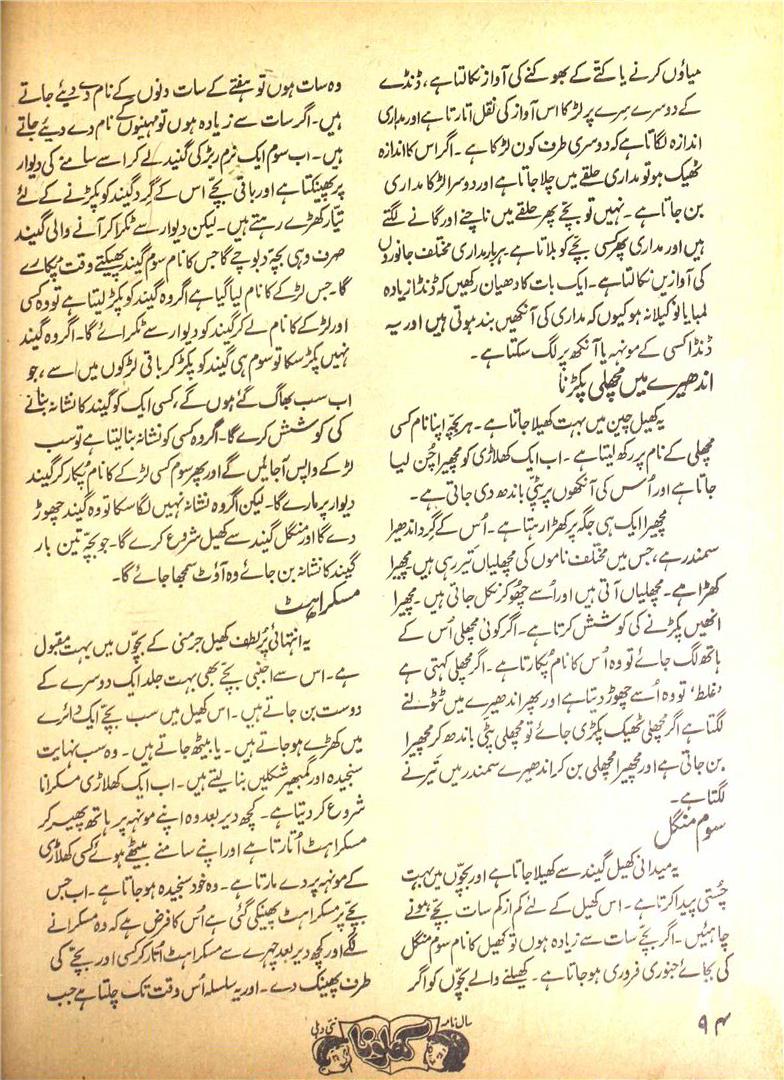 میاؤں کرنے یا کتّے کے بھوکنے کی آواز نکالتا ہے، ڈنڈے
کے دوسرے سرے پر لڑکا اس آواز کی نقل اتارتا ہے اور مداری
اندازہ لگاتا ہے کہ دوسری طرف کون لڑکا ہے۔ اگر اس کا اندازہ
ٹھیک ہو تو مداری حلقے میں چلا جاتا ہے اور دوسرا لڑکا مداری
بن جاتا ہے۔ نہیں تو بچّے پھر حلقے میں ناچنے اور گانے لگتے
ہیں اور مداری پھر کسی بچّے کو بلاتا ہے ہر بار مداری مختلف جانوروں
کی آوازیں نکالتا ہے۔ ایک بات کا دھیان رکھیں کہ ڈنڈا زیادہ
لمبا یا نوکیلا نہ ہو کیوں کہ مداری کی آنکھیں بند ہوتی ہیں اور یہ
ڈنڈا کسی کے مونہہ یا آنکھ پر لگ سکتا ہے۔
اندھیرے میں مچھلی پکڑنا
یہ کھیل چین میں بہت کھیلا جاتا ہے۔ ہر بچّہ اپنا نام کسی
مچھلی کے نام پر رکھ لیتا ہے۔ اب ایک کھلاڑی کو مچھیرا چُن لیا
جاتا ہے اور اُس کی آنکھوں پر پٹّی باندھ دی جاتی ہے۔
مچھیرا ایک ہی جگہ پر کھڑا رہتا ہے۔ اُس کے گرد اندھیرا
سمندر ہے، جس میں مختلف ناموں کی مچھلیاں تیر رہی ہیں مچھیرا
کھڑا ہے۔ مچھلیاں آتی ہیں اور اُسے چھو کر نکل جاتی ہیں۔ مچھیرا
انھیں پکڑنے کی کوشش کرتا ہے۔ اگر کوئی مچھلی اُس کے
ہاتھ لگ جائے تو وہ اُس کا نام پُکارتا ہے۔ اگر مچھلی کہتی ہے
’غلط‘ تو وہ اُسے چھوڑ دیتا ہے اور پھر اندھیرے میں ٹٹولنے
لگتا ہے اگر مچھلی ٹھیک پکڑی جائے تو مچھلی پٹّی باندھ کر مچھیرا
بن جاتی ہے اور مچھیرا مچھلی بن کر اندھیرے سمندر میں تیرنے
لگتا ہے۔
سوم منگل
یہ میدانی کھیل گیند سے کھیلا جاتا ہے اور بچّوں میں بہت
چُستی پیدا کرتا ہے۔ اس کھیل کے لئے کم از کم سات بچّے ہونے
چاہئیں۔ اگر بچّے سات سے زیادہ ہوں تو کھیل کا نام سوم منگل
کی بجائے جنوری فروری ہو جاتا ہے۔ کھیلنے والے بچّوں کو اگر
وہ سات ہوں تو ہفتے کے سات دنوں کے نام دے دیئے جاتے
ہیں۔ اگر سات سے زیادہ ہوں تو مہینوں کے نام دے دیئے جاتے
ہیں۔ اب سوم ایک نرم ربڑ کی گیند لے کر اسے سامنے کی دیوار
پر پھینکتا ہے اور باقی بچّے اس کے گرد گیند کو پکڑنے کے لئے
تیار کھڑے رہتے ہیں۔ لیکن دیوار سے ٹکرا کر آنے والی گیند
صرف وہی بچّہ دبوچے گا جس کا نام سوم گیند پھینکتے وقت پُکارے
گا۔ جس لڑکے کا نام لیا گیا ہے اگر وہ گیند کو پکڑ لیتا ہے تو وہ کسی
اور لڑکے کا نام لے کر گیند کو دیوار سے ٹکرائے گا۔ اگر وہ گیند
نہیں پکڑ سکا تو سوم ہی گیند کو پکڑ کر باقی لڑکوں میں سے، جو
اب سب بھاگ گئے ہوں گے، کسی ایک کو گیند کا نشانہ بنانے
کی کوشش کرے گا۔ اگر وہ کسی کو نشانہ بنا لیتا ہے تو سب
لڑکے واپس آجائیں گے اور پھر سوم کسی لڑکے کا نام پُکار کر گیند
دیوار پر مارے گا۔ لیکن اگر وہ نشانہ نہیں لگا سکا تو وہ گیند چھوڑ
دے گا اور منگل گیند سے کھیل شروع کرے گا۔ جو بچّہ تین بار
گیند کا نشانہ بن جائے وہ آؤٹ سمجھا جائے گا۔
مسکراہٹ
یہ انتہائی پُر لطف کھیل جرمنی کے بچّوں میں بہت مقبول
ہے۔ اس سے اجنبی بچّے بھی بہت جلد ایک دوسرے کے
دوست بن جاتے ہیں۔ اس کھیل میں سب بچّے ایک دائرے
میں کھڑے ہو جاتے ہیں۔ یا بیٹھ جاتے ہیں۔ وہ سب نہایت
سنجیدہ اور گمبھیر شکلیں بنا لیتے ہیں۔ اب ایک کھلاڑی مسکرانا
شروع کر دیتا ہے۔ کچھ دیر بعد وہ اپنے مونہہ پر ہاتھ پھیر کر
مسکراہٹ اُتارتا ہے اور اپنے سامنے بیٹھے ہوئے کسی کھلاڑی
کے مونہہ پر دے مارتا ہے۔ وہ خود سنجیدہ ہو جاتا ہے۔ اب جس
بچّے پر مسکراہٹ پھینکی گئی ہے اُس کا فرض ہے کہ وہ مسکرانے
لگے اور کچھ دیر بعد چہرے سے مسکراہٹ اُتار کر کسی اور بچّے کی
طرف پھینک دے۔ اور یہ سلسلہ اُس وقت تک چلتا ہے جب
سال نامہ کھلونا نئی دہلی
۹۴